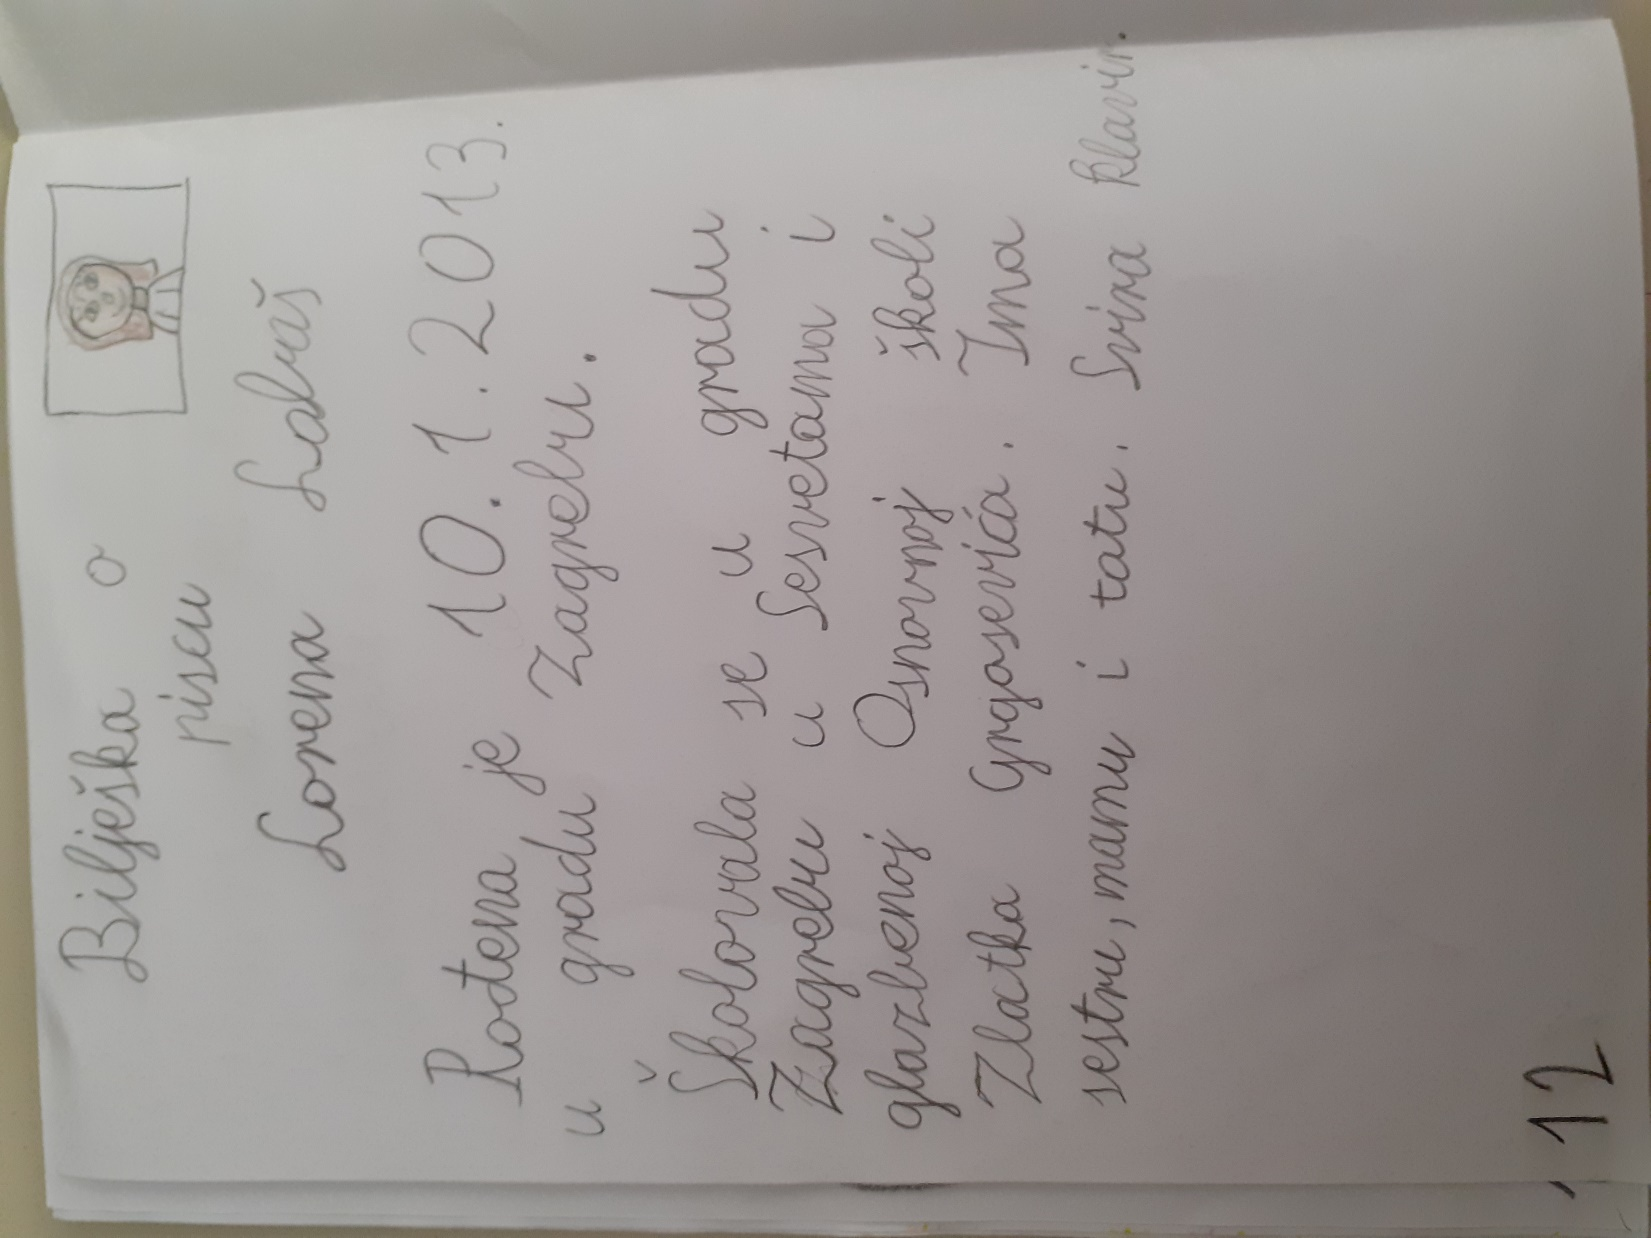 Bilješka o
piscu
Lorena Labaš
Rođena je 10. 1. 2013.
u gradu Zagrebu.
Školovala se u gradu
Zagrebu u Sesvetama i
glazbenoj Osnovnoj školi
Zlatka Grgoševića. Ima
sestru, mamu i tatu. Svira klavir.
12